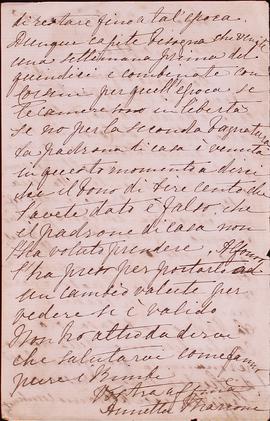 di restare fino a tal'epoca.
Dunque capite bisogna che venite
una settimana prima dei
quindici e combinate con
per quell'epoca se
le camere sono in libertà
se no per la seconda
la padrona di casa è venuta
in questo momento a dirci
se il bono di lire cento che
l'avete dato è falso. che
il padrone di casa non
l'ha voluto prendere.
l'ha preso per portarlo ad
un cambio valute per
vedere se è valido
Non ho altro da dirvi
che salutarvi come
pure i Bimbi
Vostra
Annetta